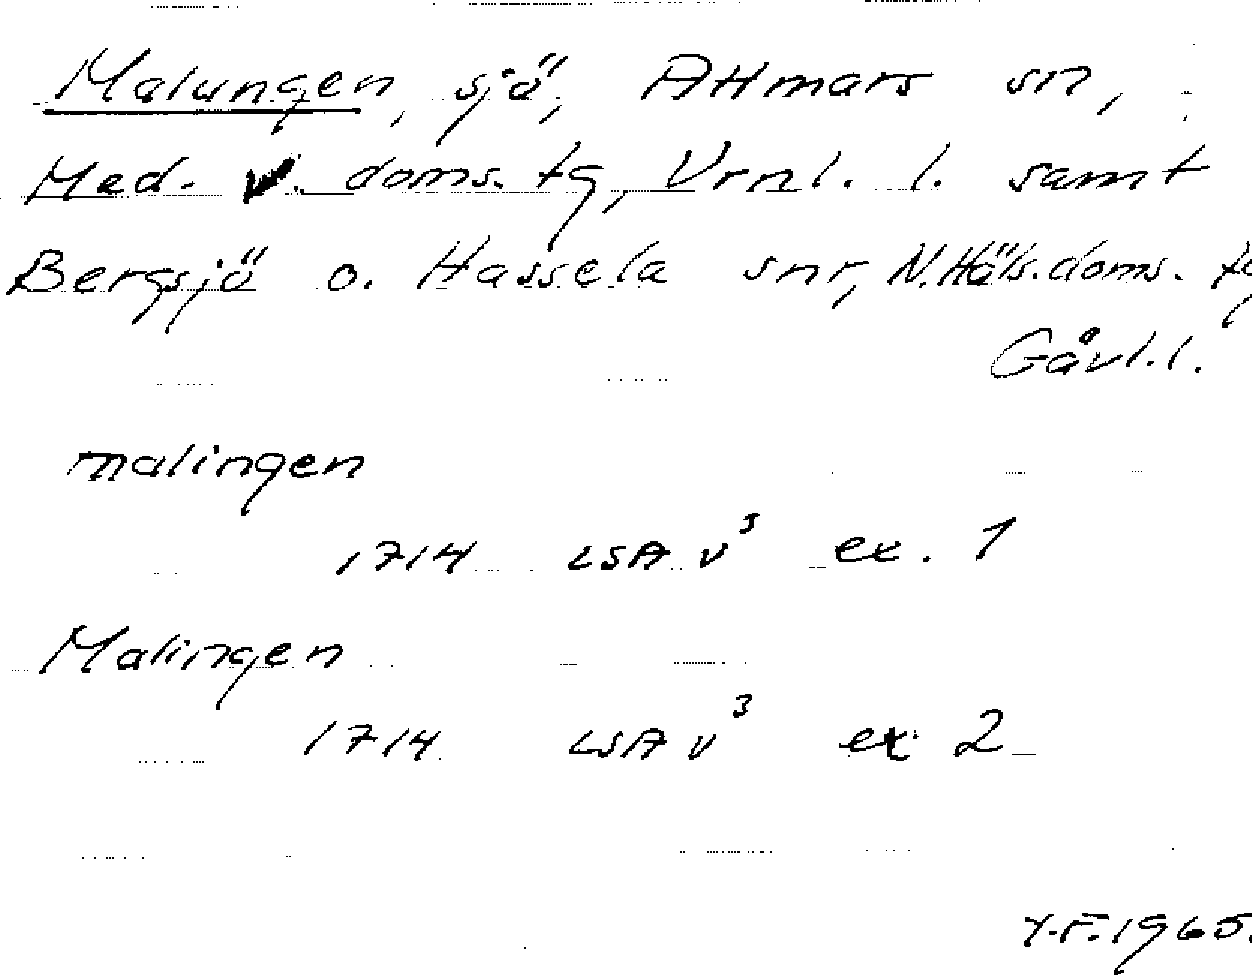 Malungen, sjö, Attmars sn,
Med. doms. tg, Vrnl. l. samt
Bergsjö o. Hassela snr, N.Häls.doms. tg
Gävl.l.
malingen
1714 LSA v³ ex. 1
Malingen
1714 LSA v³ ex 2
Y.F. 1965.